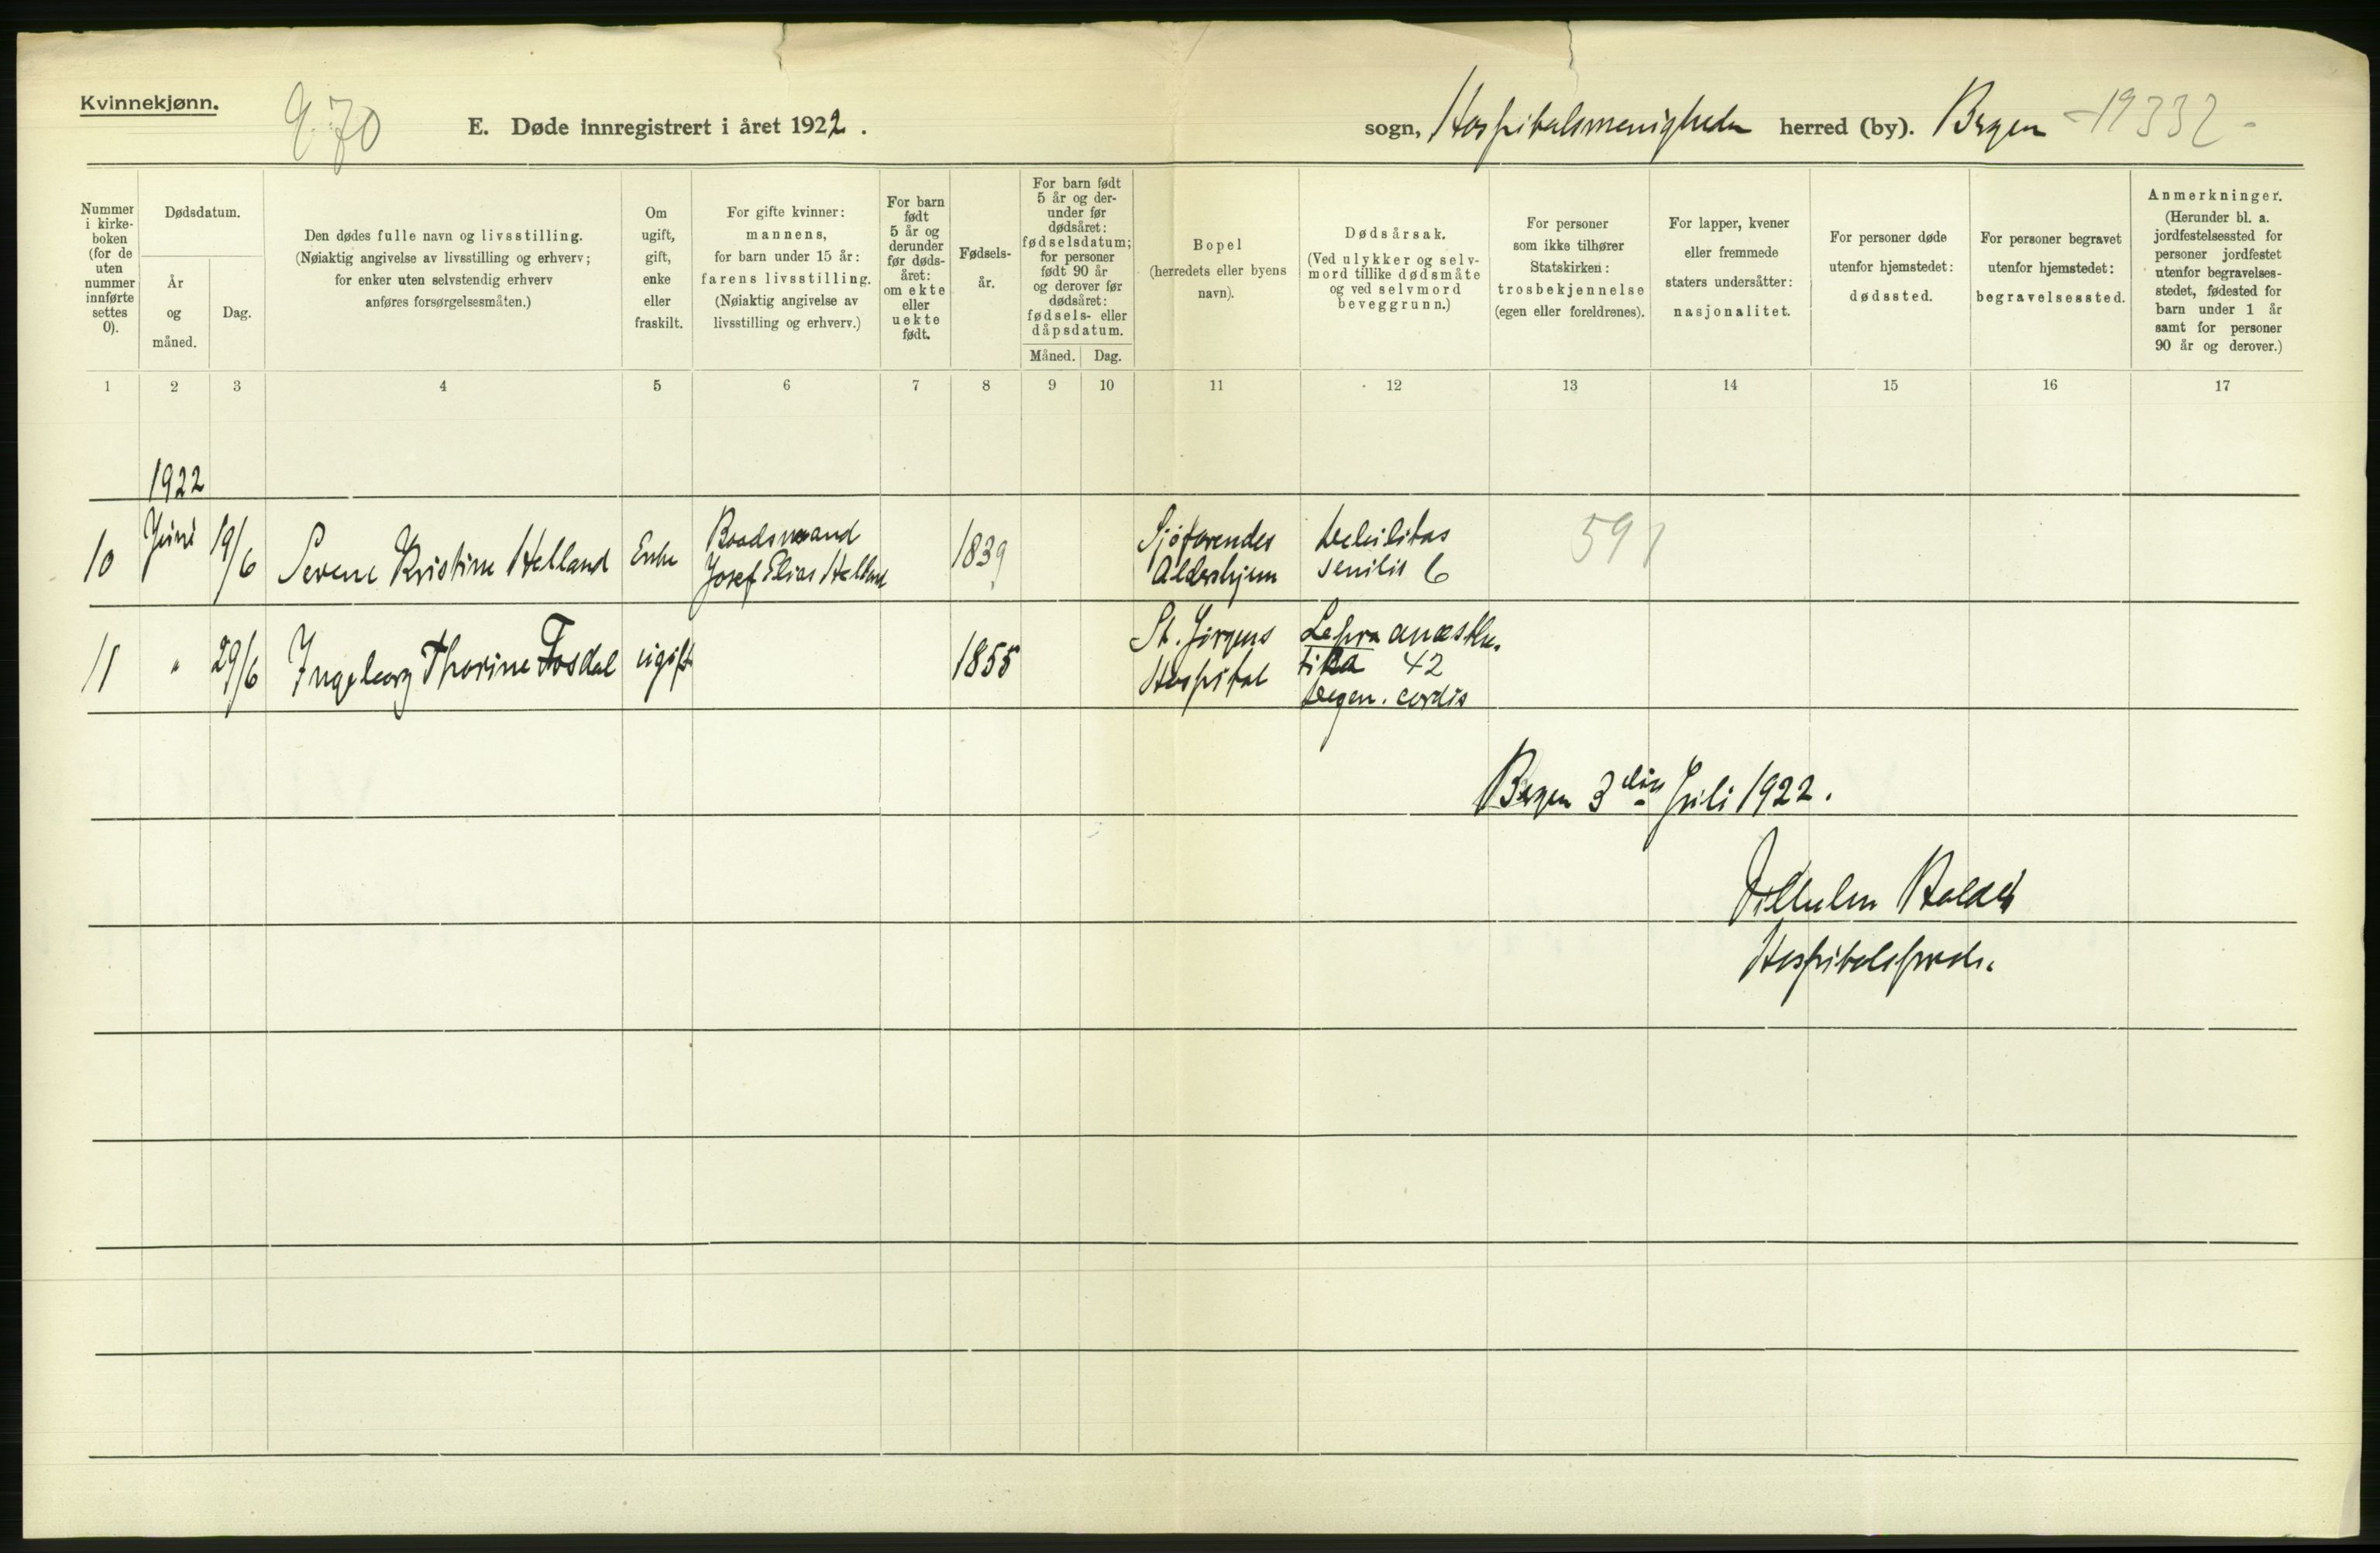 Kvinnekjønn.
970
E. Døde innregistrert i året 1922.
sogn, Hospitalsmenigheden herred (by). Bergen -19332-
Nummer
i kirke-
boken
(for de
uten
nummer
innførte
settes
0).
Dødsdatum.
År
og
måned.
Dag.
Den dødes fulle navn og livsstilling.
(Nøiaktig angivelse av livsstilling og erhverv;
for enker uten selvstendig erhverv
anføres forsørgelsesmåten.)
Om
ugift,
gift,
enke
eller
fraskilt.
For gifte kvinner:
mannens,
for barn under 15 år:
farens livsstilling.
(Nøiaktig angivelse av
livsstilling og erhverv.)
For barn
født
5 år og
derunder
før døds-
året:
om ekte
eller
uekte
født.
Fødsels-
år.
For barn født
5 år og der-
under før
dødsåret:
fødselsdatum;
for personer
født 90 år
og derover før
dødsåret:
fødsels- eller
dåpsdatum.
Måned.
Dag.
Bopel
(herredets eller byens
navn).
Dødsårsak.
(Ved ulykker og selv-
mord tillike dødsmåte
og ved selvmord
beveggrunn.)
For personer
som ikke tilhører
Statskirken:
trosbekjennelse
(egen eller foreldrenes).
For lapper, kvener
eller fremmede
staters undersåtter:
nasjonalitet.
For personer døde
utenfor hjemstedet:
dødssted.
For personer begravet
utenfor hjemstedet:
begravelsessted.
Anmerkninger.
(Herunder bl. a.
jordfestelsessted for
personer jordfestet
utenfor begravelses-
stedet, fødested for
barn under 1 år
samt for personer
90 år og derover.)
1 2 3 4 5 6 7 8 9 10 11 12 13 14 15 16 17
1922
10 Juni 19/6 Serene Kristine Helland Enke
Baadsmand
Josef Elias Helland
1839
Sjøfarendes
Aldershjem
Debilitas
senilis 6
591
11 " 29/6 Ingeborg Thorine Fosdal ugift 1855
St. Jørgens
Hospital
Lepra anæsthe-
tika 42
Degen. cordis
Bergen 3die Juli 1922.
Vilhelm Holdt
Hospitalspræst.